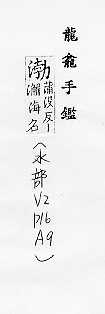 龍龕手鑑
渤 蒲没反－
瀚海名
(水部
V2
P16
A9)